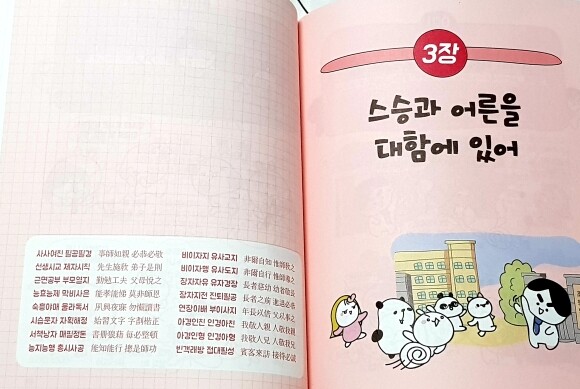 사사여친 필공필경 事師如親 必恭必敬
선생시교 제자시칙 先生施敎 弟子是則
근면공부 부모열지 勤勉工夫 父母悅之
능효능제 막비사은 能孝能悌 莫非師恩
숙흥야매 물라독서 夙興夜寐 勿懶讀書
시습문자 자획해정 始習文字 字劃楷正
서책낭자 매필정돈 書冊狼藉 每必整頓
능지능행 총시사공 能知能行 總是師功
비이자지 유사교지 非爾自知 惟師敎之
비이자행 유사도지 非爾自行 惟師導之
장자자유 유자경장 長者慈幼 幼者敬長
장자지전 진퇴필공 長者之前 進退必恭
연장이배 부이사지 年長以倍 父以事之
아경인친 인경아친 我敬人親 人敬我親
아경인형 인경아형 我敬人兄 人敬我兄
빈객래방 접대필성 賓客來訪 接待必誠
3장
스승과 어른을
대함에 있어